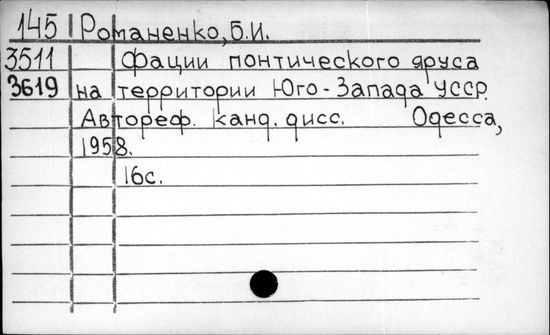 145 Романенко, Б.И.
3511 Фации понтического яруса
3619 на территории Юго-Запада УССР.
Автореф. канд. дисс. Одесса,
1958.
16с.